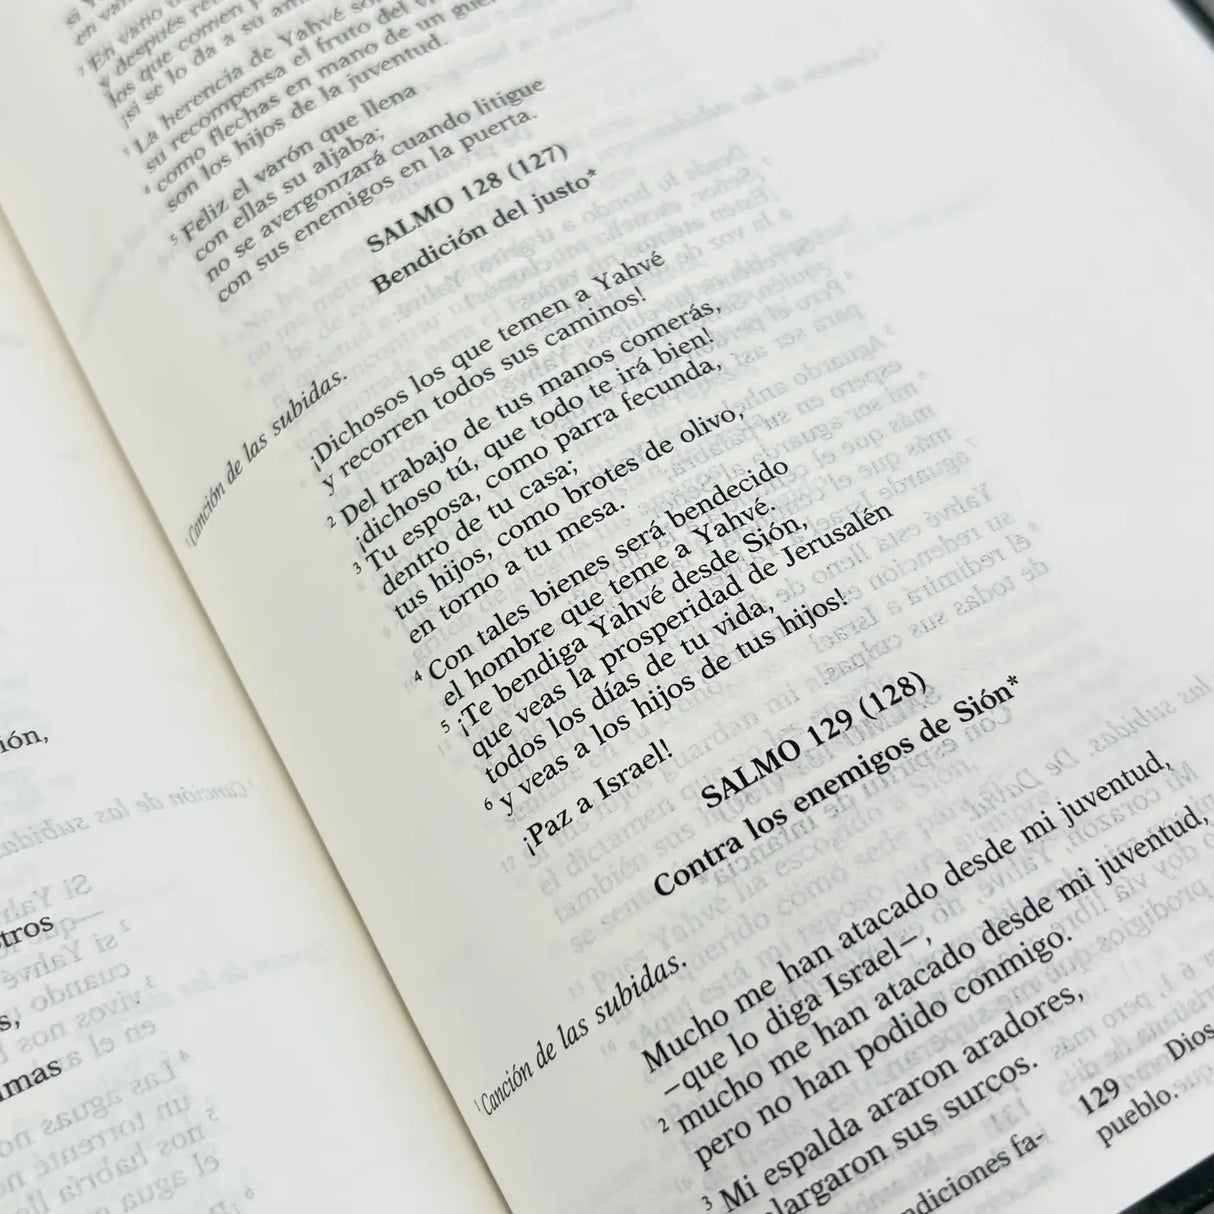 en vano
² En vano
y después
los que comen
¡si se lo da a su
³ La herencia de Yahvé son
su recompensa el fruto del
⁴ como flechas en mano de un
son los hijos de la juventud.
⁵ Feliz el varón que llena
con ellas su aljaba;
no se avergonzará cuando litigue
con sus enemigos en la puerta.
SALMO 128 (127)
Bendición del justo*
¹ Canción de las subidas.
¡Dichosos los que temen a Yahvé
y recorren todos sus caminos!
² Del trabajo de tus manos comerás,
¡dichoso tú, que todo te irá bien!
³ Tu esposa, como parra fecunda,
dentro de tu casa;
tus hijos, como brotes de olivo,
en torno a tu mesa.
⁴ Con tales bienes será bendecido
el hombre que teme a Yahvé.
⁵ ¡Te bendiga Yahvé desde Sión,
que veas la prosperidad de Jerusalén
todos los días de tu vida,
⁶ y veas a los hijos de tus hijos!
¡Paz a Israel!
SALMO 129 (128)
Contra los enemigos de Sión*
¹ Canción de las subidas.
Mucho me han atacado desde mi juventud,
—que lo diga Israel—,
² mucho me han atacado desde mi juventud,
pero no han podido conmigo.
³ Mi espalda araron aradores,
alargaron sus surcos.
ndiciones fa-
129 Dios
pueblo.
ión,
tros
s,
imas